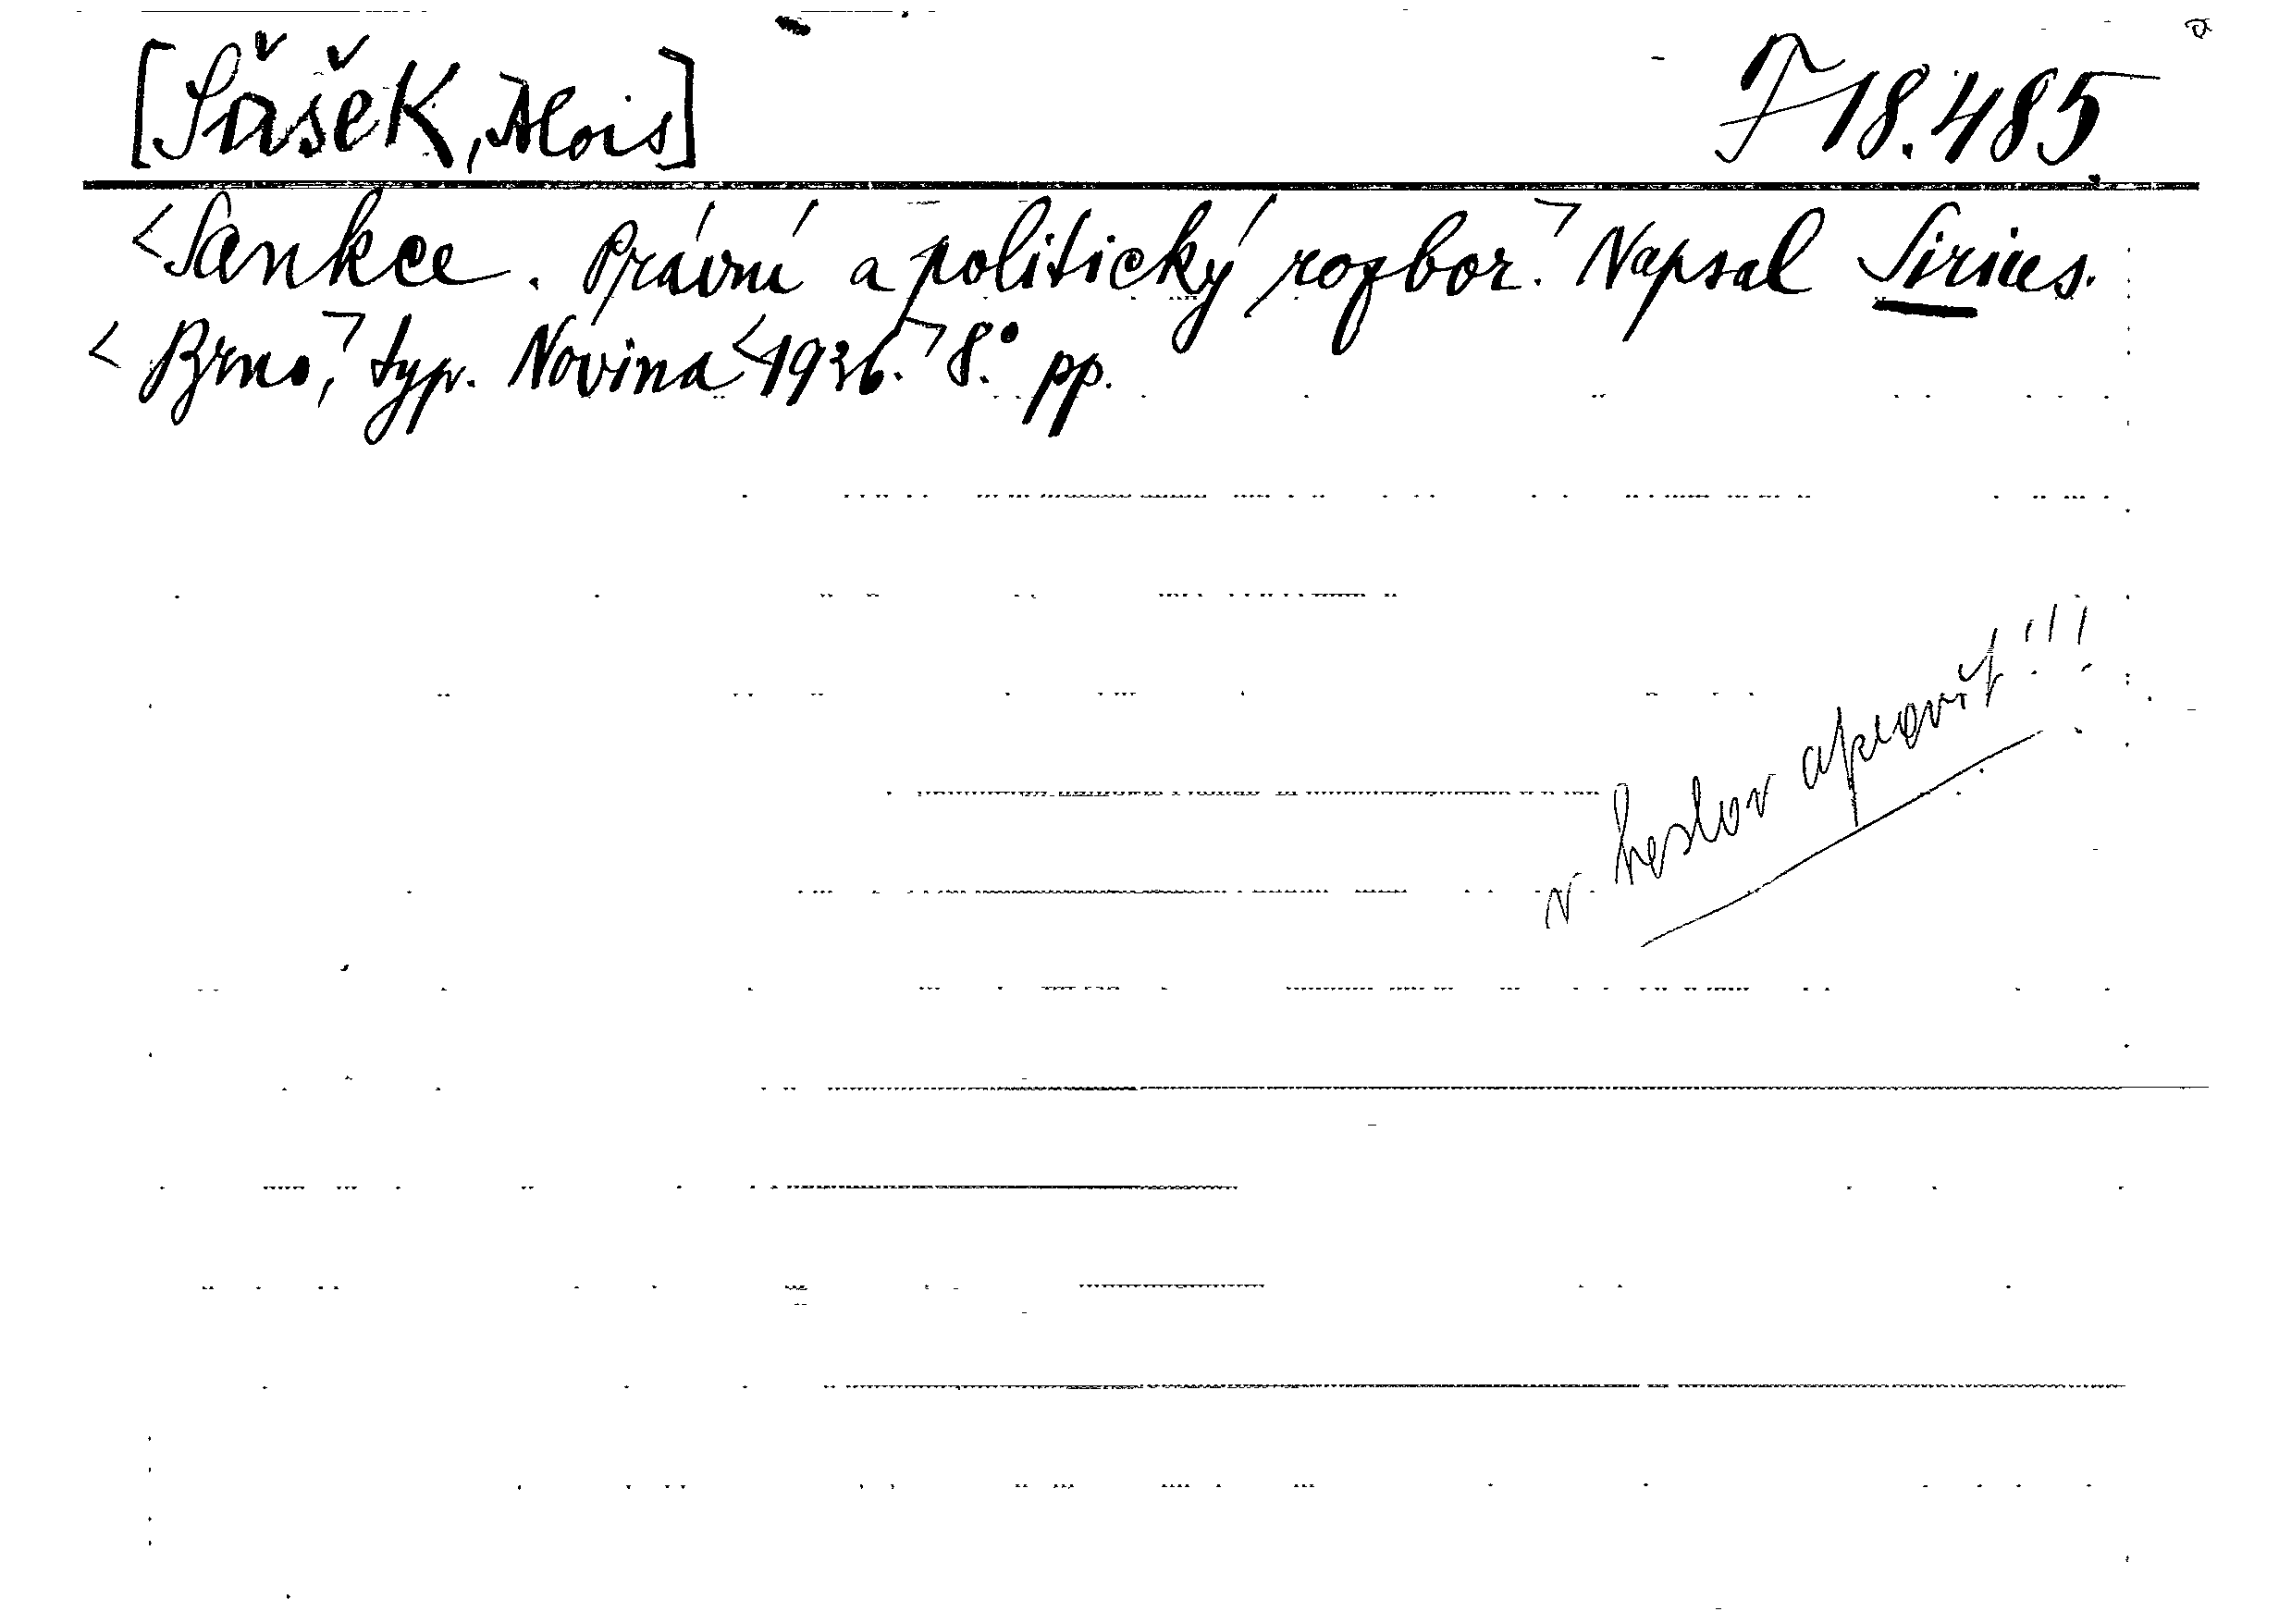 [Šašek, Alois] F 18.485
<Sankce. Právní a politický rozbor.> Napsal Sirius.
<Brno,> typ. Novina <1936.> 8.° pp.
v heslov opravit!!!